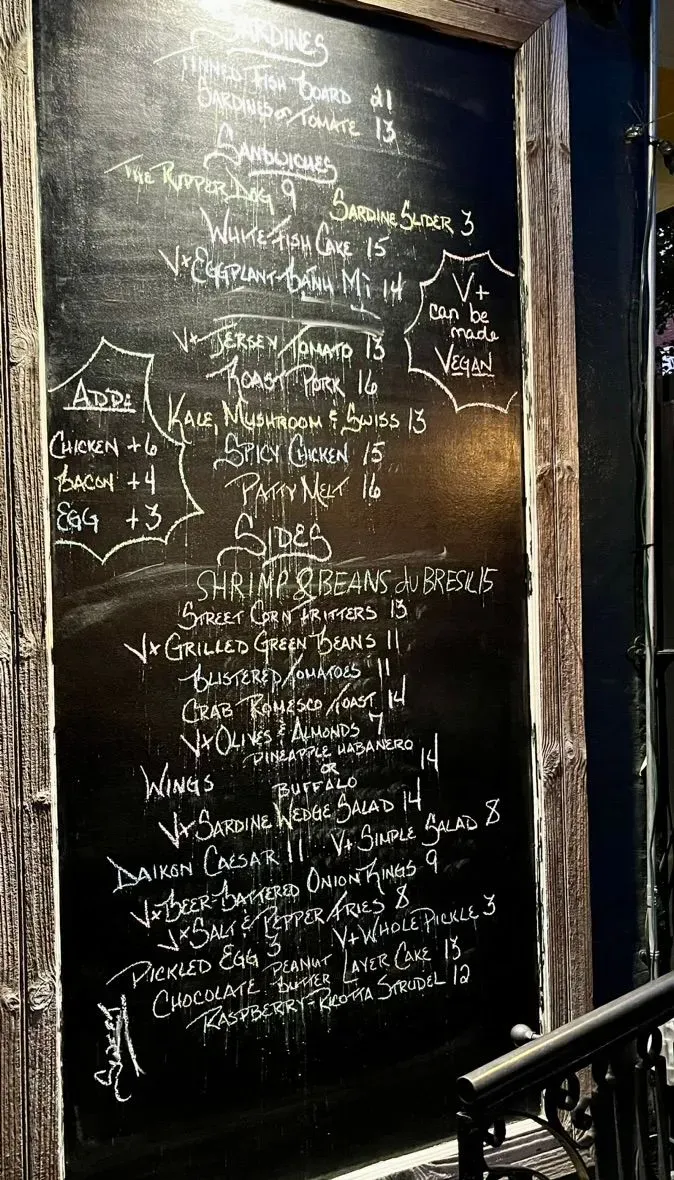 SARDINES
TINNED FISH BOARD 21
SARDINES & TOMATE 13
SANDWICHES
THE RIPPER DOG 9
SARDINE SLIDER 3
WHITE FISH CAKE 15
V+ EGGPLANT BANH MI 14
V+ can be made VEGAN
V+ JERSEY TOMATO 13
ROAST PORK 16
KALE, MUSHROOM & SWISS 13
SPICY CHICKEN 15
PATTY MELT 16
ADD:
CHICKEN +6
BACON +4
EGG +3
SIDES
SHRIMP & BEANS du BRESIL 15
STREET CORN FRITTERS 13
V+ GRILLED GREEN BEANS 11
BLISTERED TOMATOES 11
CRAB ROMESCO TOAST 14
V+ OLIVES & ALMONDS 7
WINGS PINEAPPLE HABANERO OR BUFFALO 14
V+ SARDINE WEDGE SALAD 14
DAIKON CAESAR 11 V+ SIMPLE SALAD 8
V+ BEER-BATTERED ONION RINGS 9
V+ SALT & PEPPER FRIES 8
PICKLED EGG 3 V+ WHOLE PICKLE 3
CHOCOLATE PEANUT BUTTER LAYER CAKE 13
RASPBERRY-RICOTTA STRUDEL 12